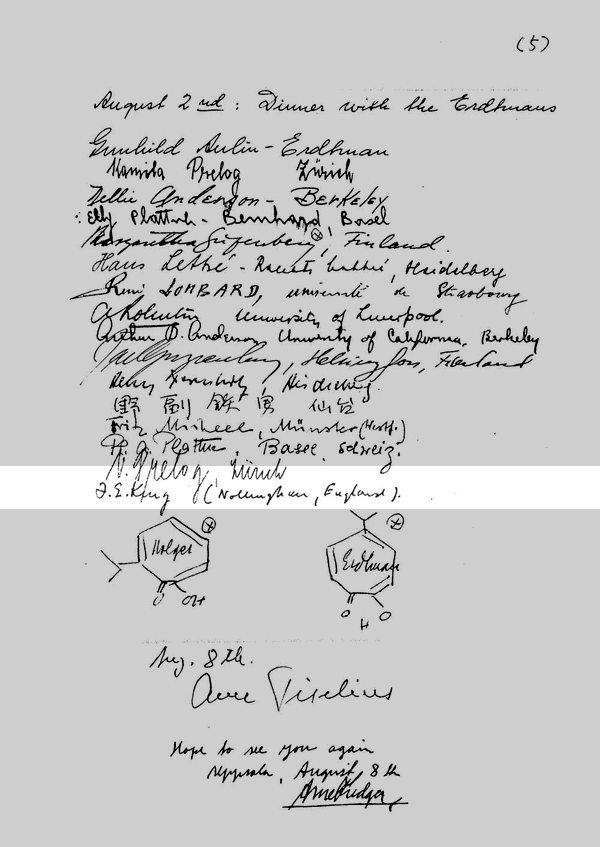 (5)
August 2nd: Dinner with the Erdtmans
Gunhild Aulin-Erdtman
Kamila Prelog Zürich
Nellie Anderson - Berkeley
Elly Plattner - Bernhard, Basel
Margaretha Gripenberg, Finland.
Hans Lettré - Renate Lettré, Heidelberg
René LOMBARD, université de Strasbourg
University of Liverpool.
Arthur G. Anderson University of California, Berkeley
Gripenberg, Helsingfors, Finland
Heidelberg.
野副鉄男 仙台
Fritz Micheel, Münster (Westf.)
Pl. A. Plattner, Basel, Schweiz.
V. Prelog, Zürich
F. E. King (Nottingham, England).
Holger
O OH
Erdtman
O H O
Aug. 8th.
Arne Tiselius
Hope to see you again
Uppsala, August, 8th
Arne Fredga